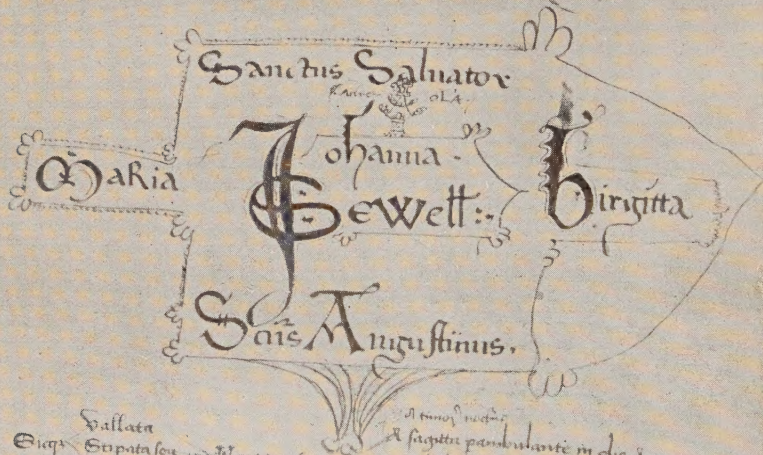 Sanctus Saluator
Maria
Johanna.
Sewell:.
birgitta
Scūs Augustinus.
Vallata
Sicqz Stipata seu
A timor nocturno
A sagitta pambulante in die